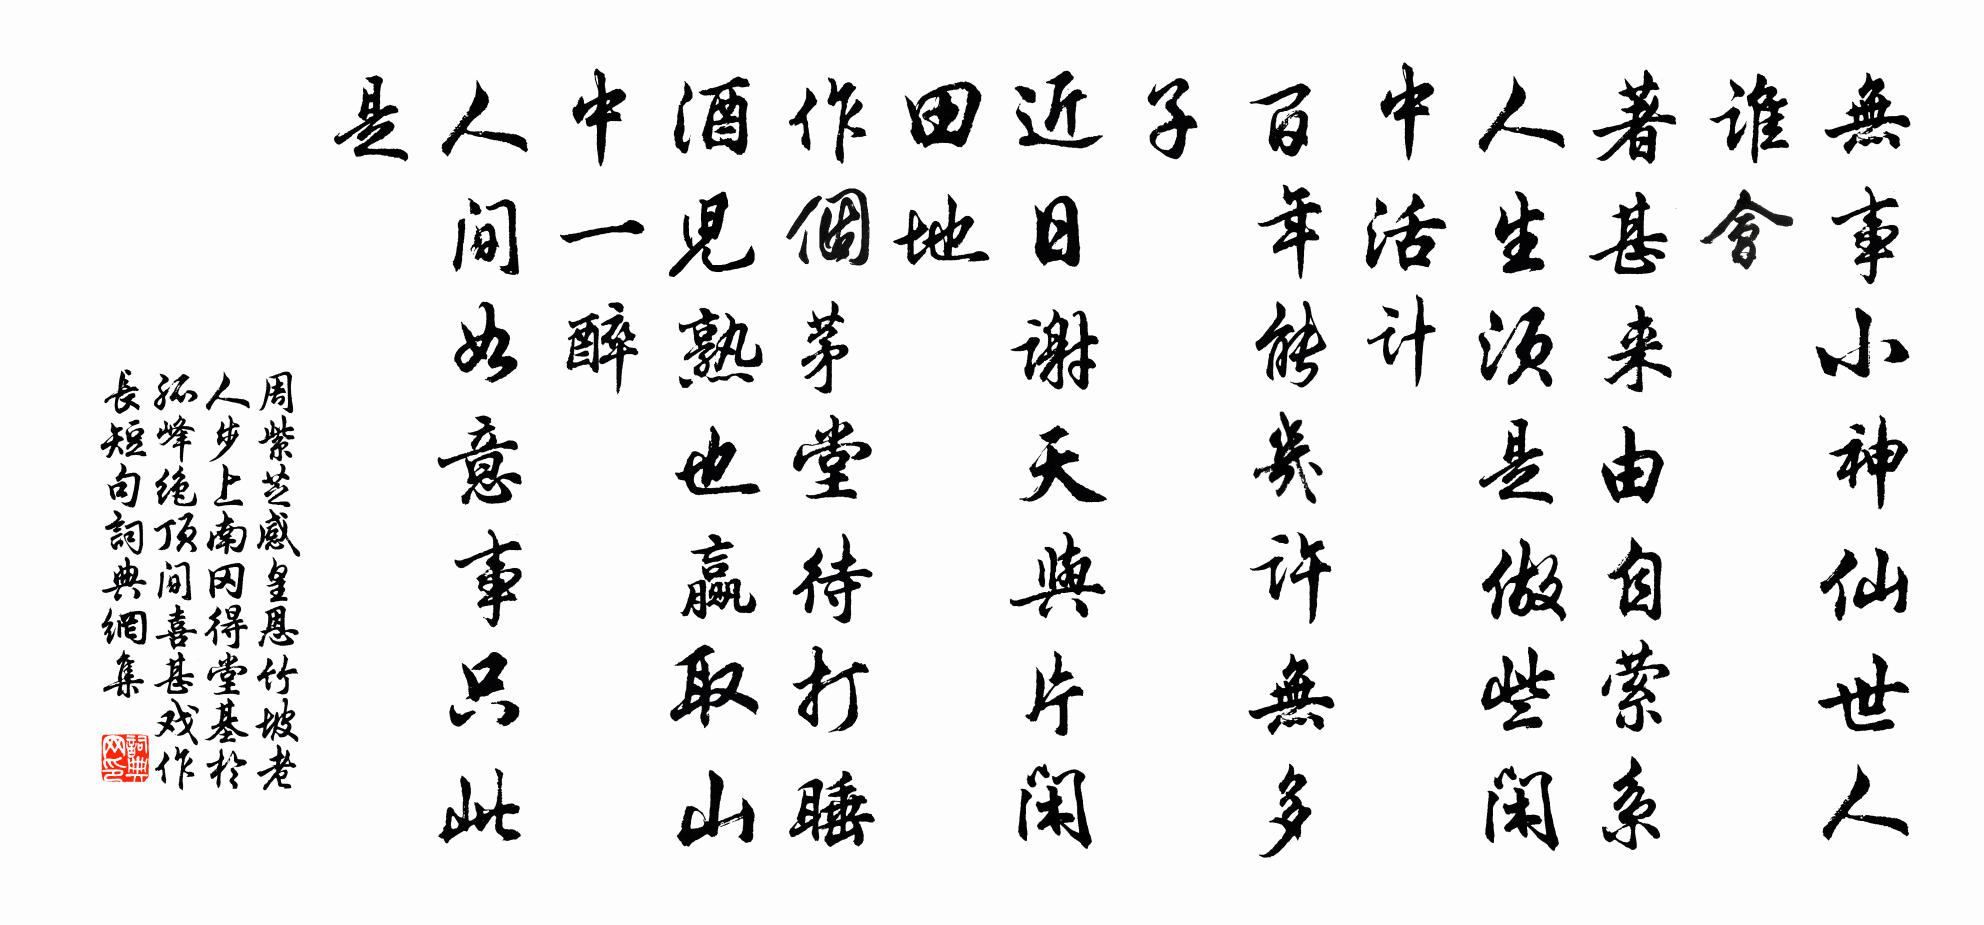 無事小神仙世人
誰會
著甚来由自萦系
人生须是做些闲
中活计
百年能幾許無多
子
近日谢天與片闲
田地
作個茅堂待打睡
酒児熟也赢取山
中一醉
人间如意事只此
是
周紫芝感皇恩竹坡老
人步上南冈得堂基於
孤峰绝顶间喜甚戏作
長短句詞典網集
詞典
网印